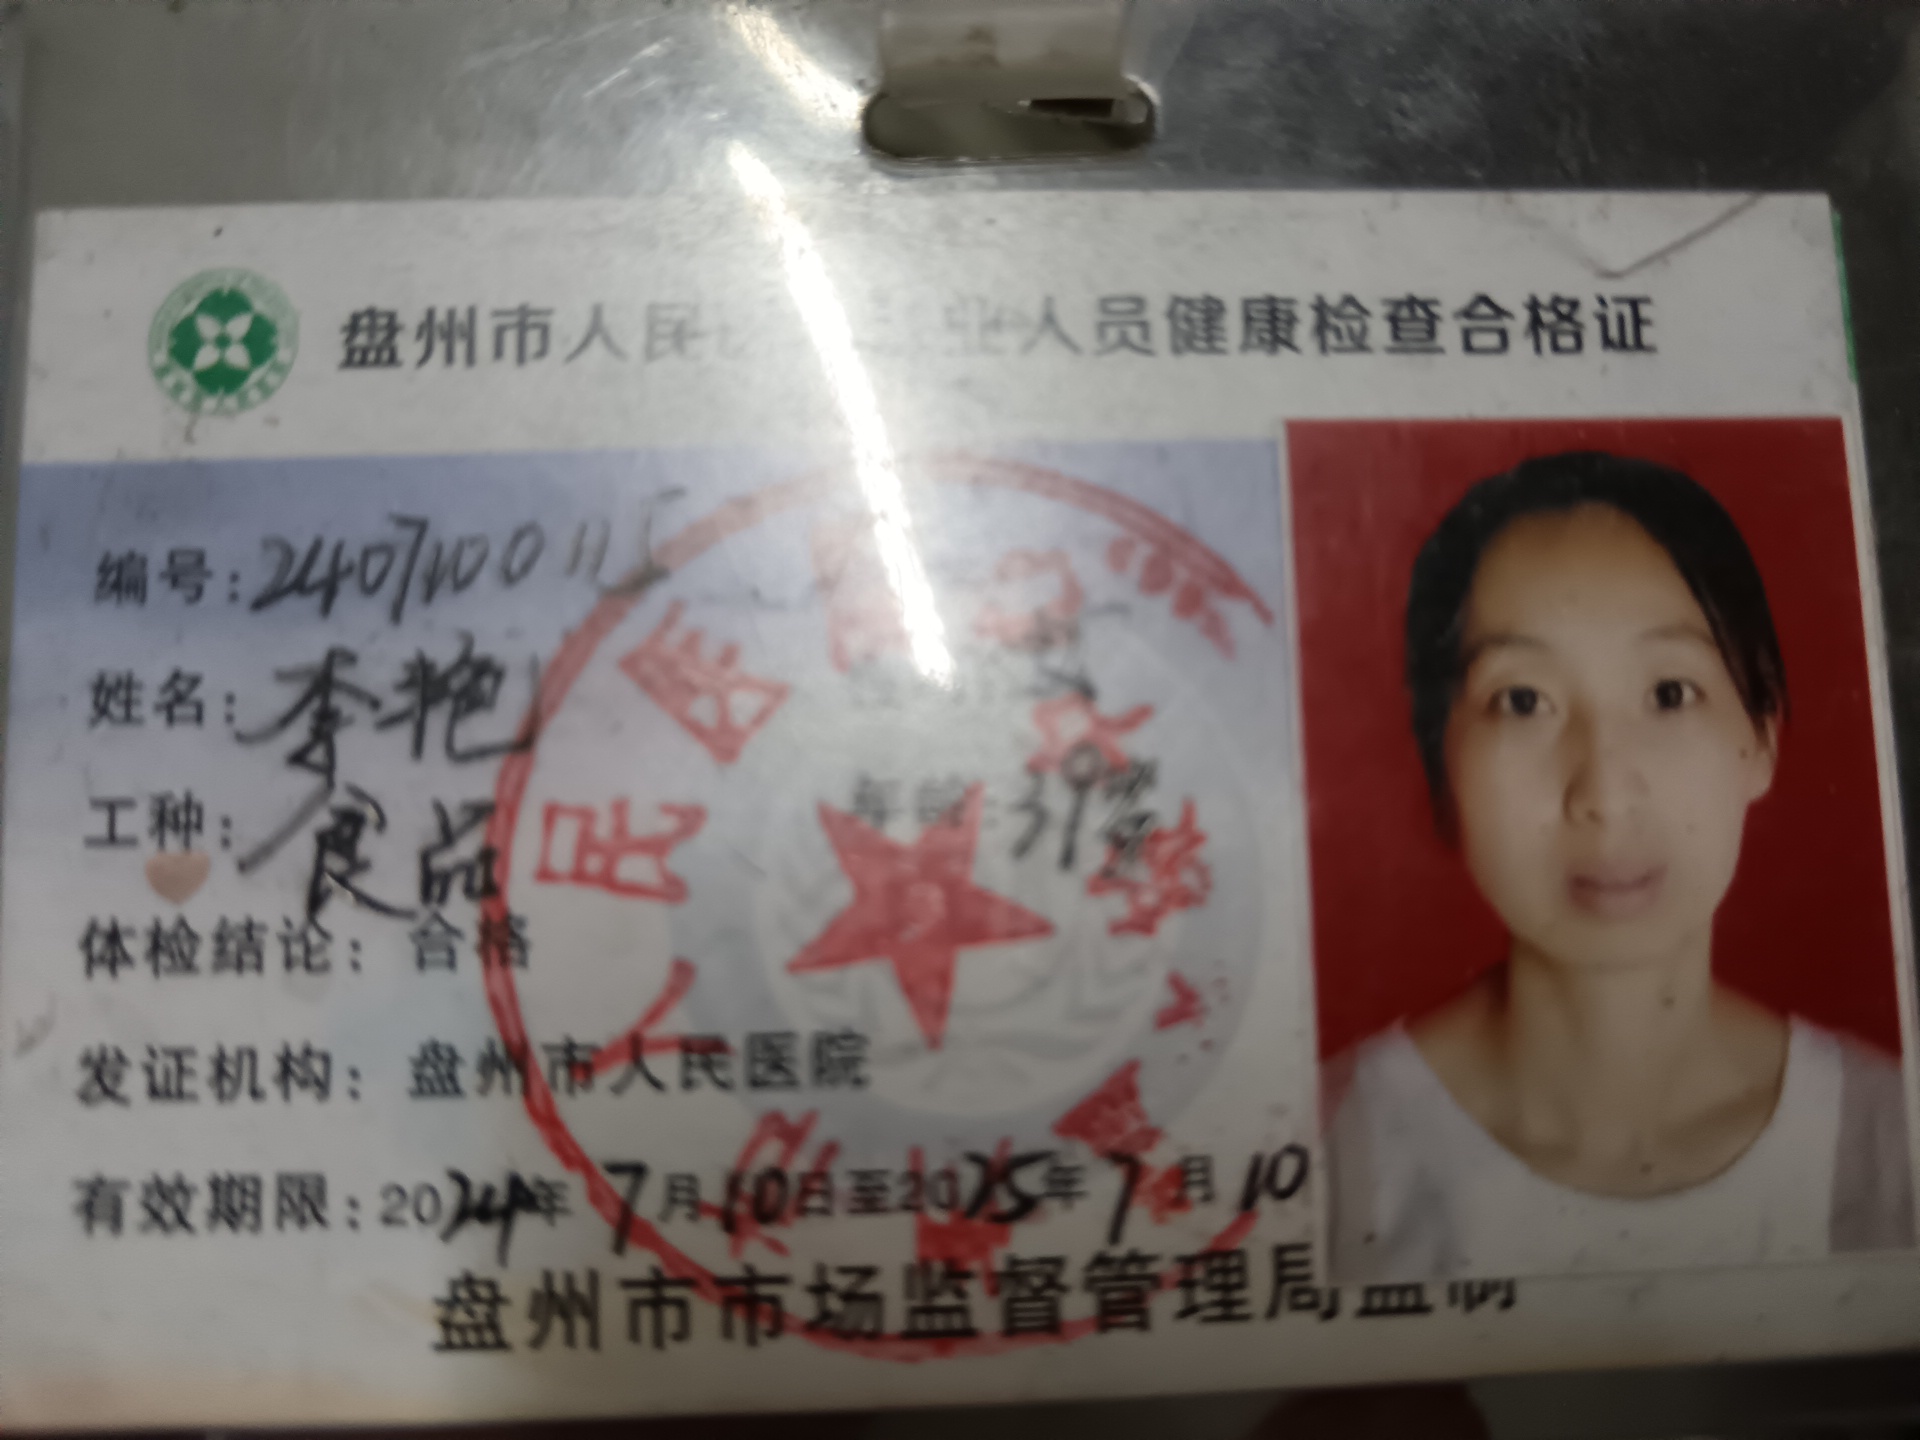 盘州市人民 业人员健康检查合格证
编号:2407100115
姓名:李艳
工种:食品
年龄:39岁
体检结论:合格
发证机构:盘州市人民医院
有效期限:2024年7月10日至2025年7月10
盘州市市场监督管理局监制